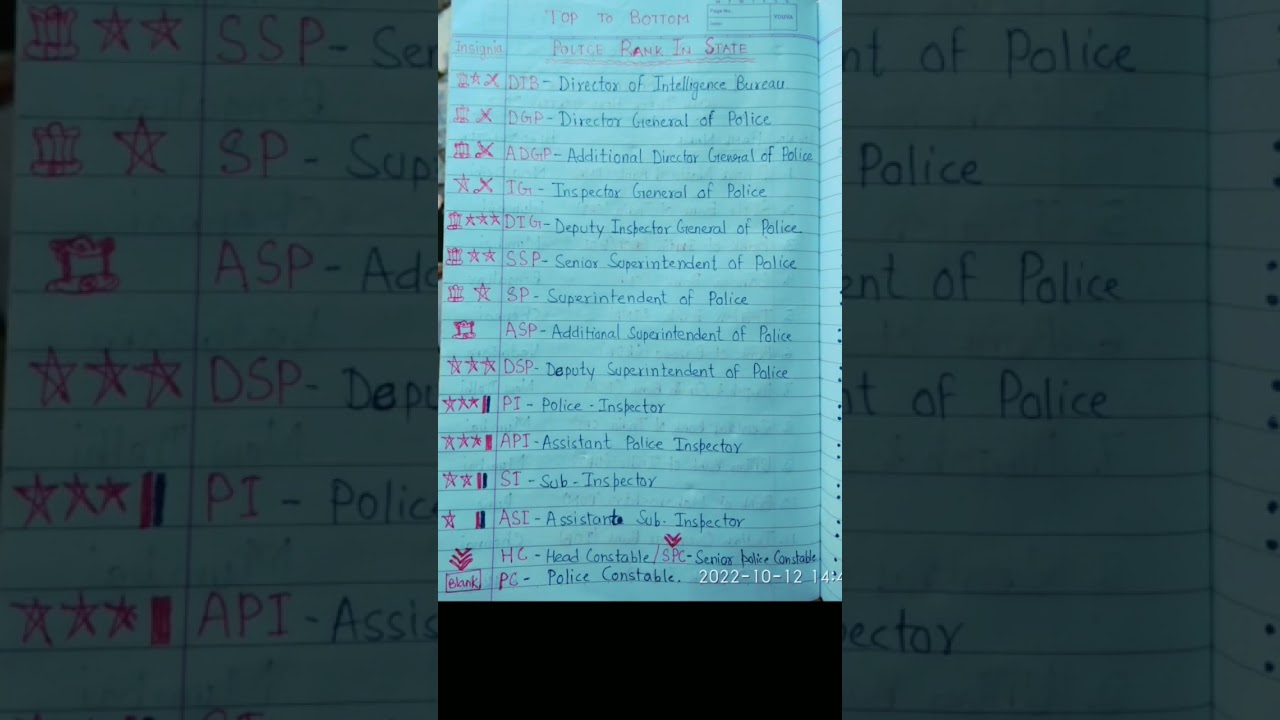 TOP TO BOTTOM
Page No.
Date:
YOUVA
Insignia POLICE RANK IN STATE
DIB - Director of Intelligence Bureau
DGP - Director General of Police
ADGP - Additional Director General of Police
IG - Inspector General of Police
DIG - Deputy Inspector General of Police
SSP - Senior Superintendent of Police
SP - Superintendent of Police
ASP - Additional Superintendent of Police
DSP - Deputy Superintendent of Police
PI - Police - Inspector
API - Assistant Police Inspector
SI - Sub - Inspector
ASI - Assistant Sub. Inspector
HC - Head Constable / SPC - Senior police Constable
Blank PC - Police Constable.
2022-10-12 14:4
SSP - Ser
nt of Police
SP - Sup
Police
ASP - Add
ent of Police
DSP - Depu
t of Police
PI - Polic
API - Assis
ector